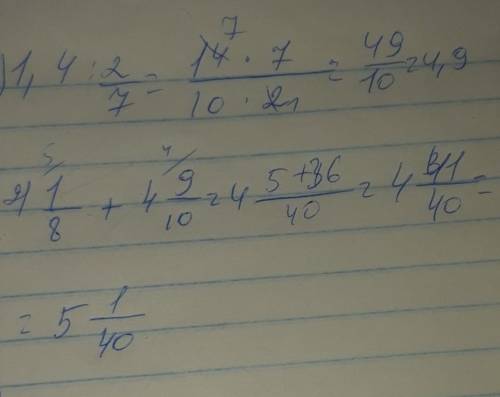 ) 1,4 : 2/7 = 14 · 7 / 10 · 2 = 49/10 = 4,9
2) 1/8 + 4 9/10 = 4 5+36/40 = 4 41/40 =
= 5 1/40